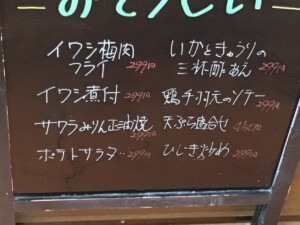 おそうざい
イワシ梅肉
フライ 299円
イワシ煮付 299円
サワラみりん正油焼
299円
ポテトサラダ‥299円
いかときゅうりの
三杯酢あえ 299円
鴨手羽元のソテー
299円
天ぷら盛合せ
ひじき炒め 299円